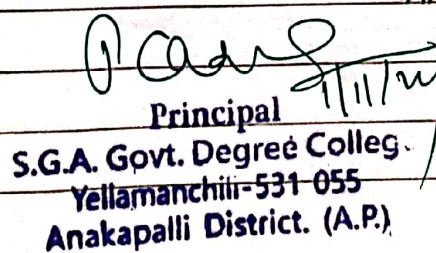 1/11/22
Principal
S.G.A. Govt. Degree Colleg.
Yellamanchili-531 055
Anakapalli District. (A.P.)